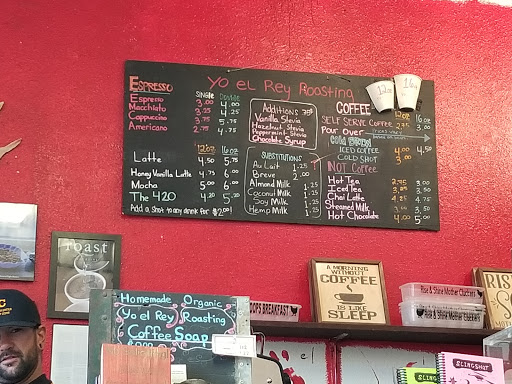 Yo el Rey Roasting
ESPRESSO
SINGLE DOUBLE
Espresso 3.00 4.00
Macchiato 3.25 4.25
Cappuccino 3.75 5.75
Americano 2.75 4.75
12oz 16oz
Latte 4.50 5.75
Honey Vanilla Latte 4.75 6.00
Mocha 5.00 6.00
The 420 4.20 5.20
Add a Shot to any drink for $2.00!
Additions 75¢
Vanilla Stevia
Hazelnut Stevia
Peppermint Stevia
Chocolate Syrup
SUBSTITUTIONS
Au Lait 1.25
Breve 2.00
Almond Milk 1.25
Coconut Milk 1.25
Soy Milk 1.25
Hemp Milk 1.25
12oz 16oz
COFFEE 12oz 16oz
SELF SERVE COFFEE 2.75 3.00
Pour Over Prices Vary
Cold Brewed
ICED COFFEE 4.00 4.50
COLD SHOT 3.00
NOT Coffee
Hot Tea 2.75 3.00
Iced Tea
Chai Latte 4.25 4.75
Steamed Milk 3.50
Hot Chocolate 4.00 5.00
roast
Homemade Organic
Yo el Rey Roasting
Coffee Soap
OPS BREAKFAST
A MORNING
WITHOUT
COFFEE
IS LIKE
SLEEP
Rise & Shine Mother Cluckers
Rise & Shine Mother Cluckers
RIS
SLINGSHOT
SLINGSHOT